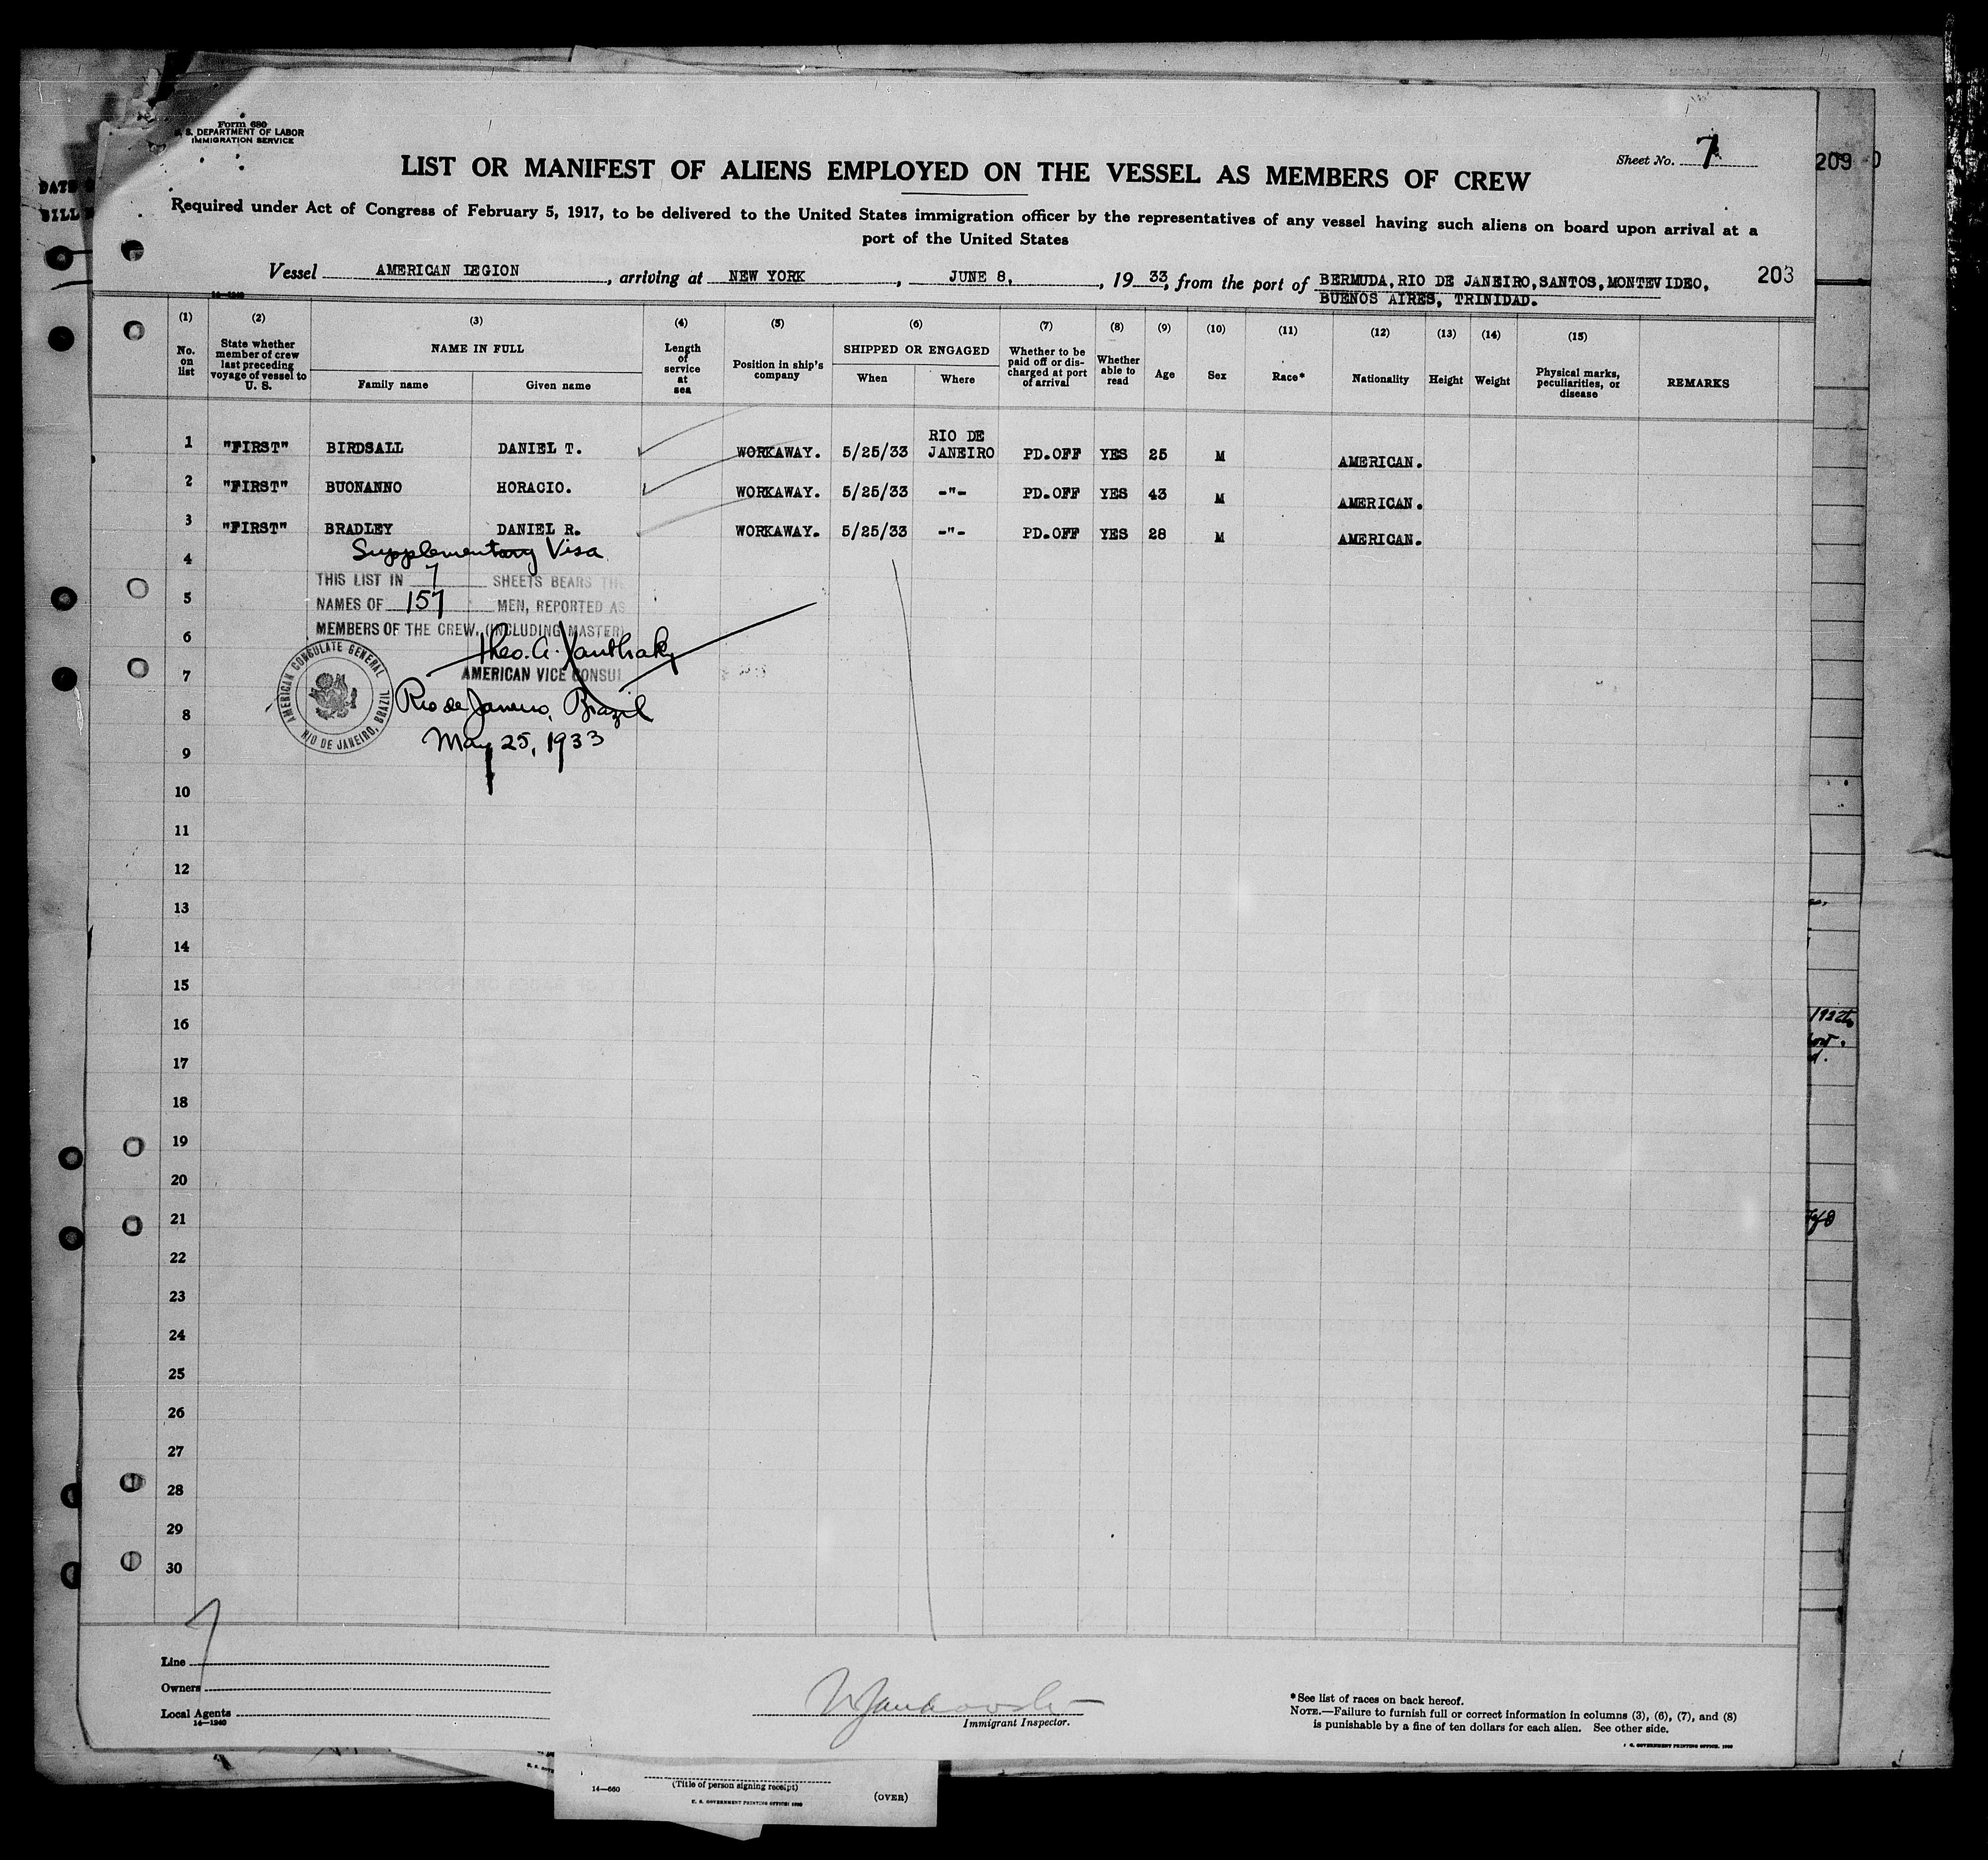 Form 680
U. S. DEPARTMENT OF LABOR
IMMIGRATION SERVICE
Sheet No. 7
209
LIST OR MANIFEST OF ALIENS EMPLOYED ON THE VESSEL AS MEMBERS OF CREW
Required under Act of Congress of February 5, 1917, to be delivered to the United States immigration officer by the representatives of any vessel having such aliens on board upon arrival at a
port of the United States
Vessel AMERICAN LEGION, arriving at NEW YORK, JUNE 8, 1933, from the port of BERMUDA, RIO DE JANEIRO, SANTOS, MONTEVIDEO,
BUENOS AIRES, TRINIDAD.
203
14—1240
(1) (2) (3) (4) (5) (6) (7) (8) (9) (10) (11) (12) (13) (14) (15)
No. on list
State whether member of crew last preceding voyage of vessel to U. S.
NAME IN FULL
Family name Given name
Length of service at sea
Position in ship's company
SHIPPED OR ENGAGED
When Where
Whether to be paid off or discharged at port of arrival
Whether able to read
Age
Sex
Race*
Nationality
Height
Weight
Physical marks, peculiarities, or disease
REMARKS
1 "FIRST" BIRDSALL DANIEL T. WORKAWAY. 5/25/33 RIO DE JANEIRO PD.OFF YES 25 M AMERICAN.
2 "FIRST" BUONANNO HORACIO. WORKAWAY. 5/25/33 -"- PD.OFF YES 43 M AMERICAN.
3 "FIRST" BRADLEY DANIEL R. WORKAWAY. 5/25/33 -"- PD.OFF YES 28 M AMERICAN.
Supplementary Visa
4
THIS LIST IN 7 SHEETS BEARS THE
5
NAMES OF 157 MEN, REPORTED AS
6
MEMBERS OF THE CREW, (INCLUDING MASTER)
Theo. A. Xanthaky
7
AMERICAN VICE CONSUL
AMERICAN CONSULATE GENERAL
RIO DE JANEIRO, BRAZIL
Rio de Janeiro, Brazil
8
May 25, 1933
9
10
11
12
13
14
15
16
17
18
19
20
21
22
23
24
25
26
27
28
29
30
Line
Owners
Local Agents
14—1240
Immigrant Inspector.
*See list of races on back hereof.
NOTE.—Failure to furnish full or correct information in columns (3), (6), (7), and (8)
is punishable by a fine of ten dollars for each alien. See other side.
14—660
(Title of person signing receipt)
(OVER)